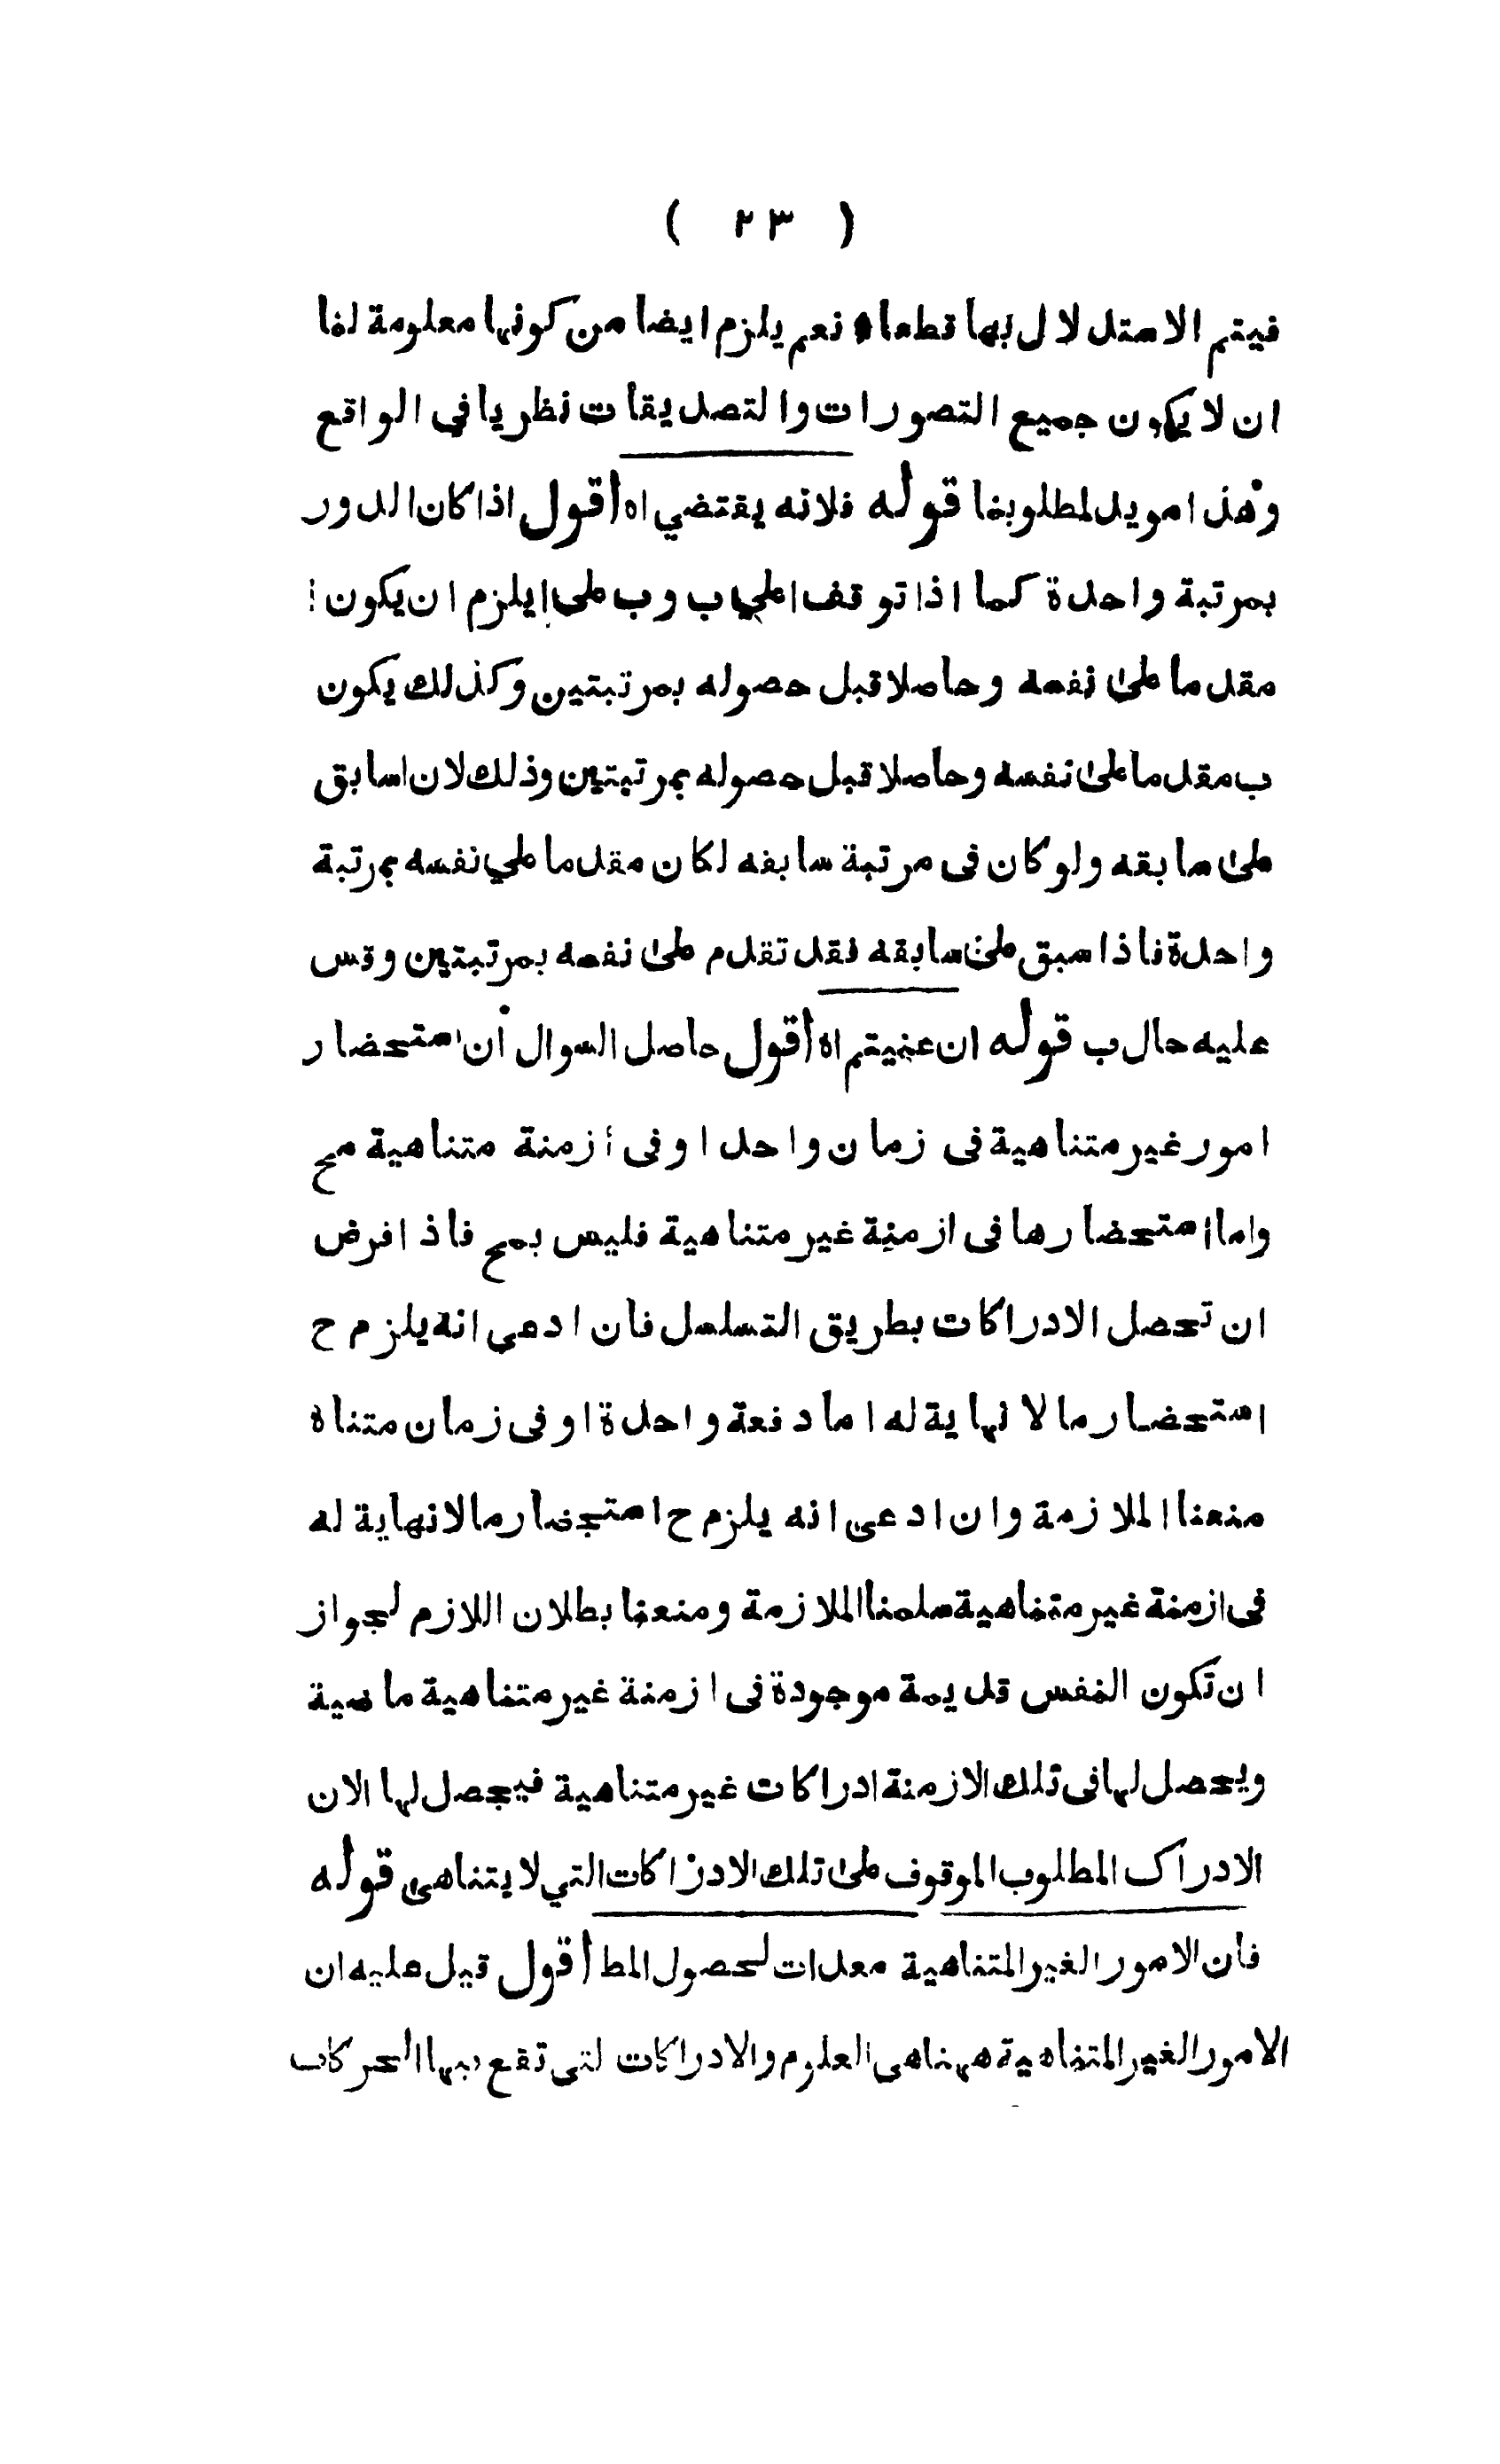 ( ٢٣ )
فيتم الاستدلال بها قطعا * نعم يلزم ايضا من كونها معلومة لنا
ان لا يكون جميع التصورات والتصديقات نظريا في الواقع
وهذا مويد لمطلوبنا قوله فلانه يقتضي اه أقول اذا كان الدور
بمرتبة واحدة كما اذا توقف ا علي ب وب على ا يلزم ان يكون ا
مقدما على نفسه وحاصلا قبل حصوله بمرتبتين وكذلك يكون
ب مقدما على نفسه وحاصلا قبل حصوله بمرتبتين وذلك لان اسابق
على سابقه ولو كان فى مرتبة سابقه لكان مقدما علي نفسه بمرتبة
واحدة فاذا سبق على سابقه فقد تقدم على نفسه بمرتبتين وقس
عليه حال ب قوله ان عنيتم اه أقول حاصل السوال أن استحضار
امور غير متناهية فى زمان واحد او فى أزمنة متناهية مح
واما استحضارها فى ازمنة غير متناهية فليس بمح فاذا فرض
ان تحصل الادراكات بطريق التسلسل فان ادعي انه يلزم ح
استحضار ما لا نهاية له اما دفعة واحدة او فى زمان متناه
منعنا الملازمة وان ادعى انه يلزم ح استحضار مالانهاية له
فى ازمنة غير متناهية سلمنا الملازمة ومنعنا بطلان اللازم لجواز
ان تكون النفس قديمة موجودة فى ازمنة غير متناهية ماضية
ويحصل لها فى تلك الازمنة ادراكات غير متناهية فيحصل لها الان
الادراك المطلوب الموقوف على تلك الادراكات التي لا يتناهى قوله
فان الامور الغير المتناهية معدات لحصول المط أقول قيل عليه ان
الامور الغير المتناهية ههنا هى العلوم والادراكات لتى تقع بها الحركات